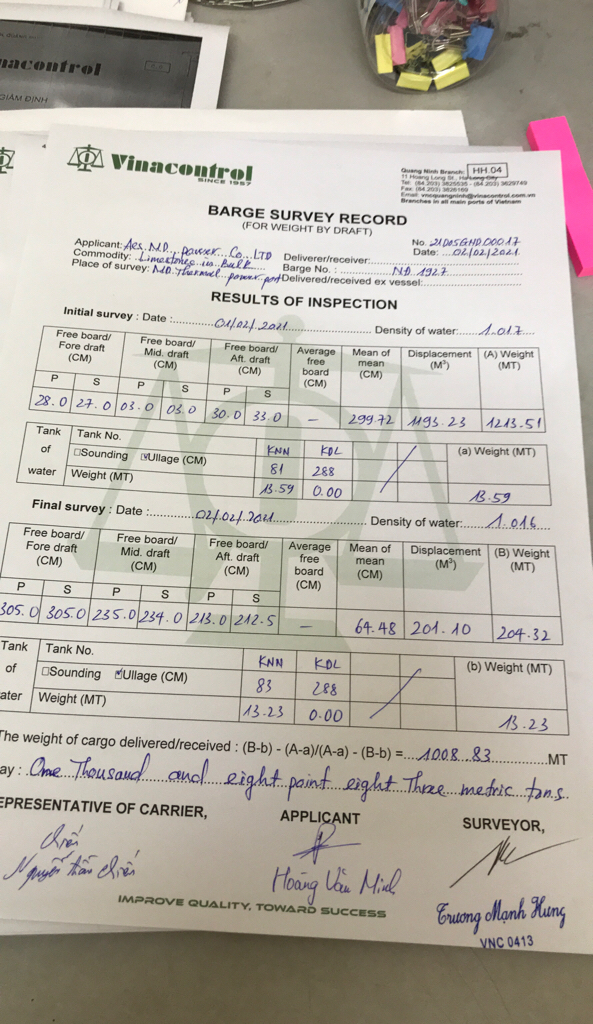 nacontrol
GIÁM ĐỊNH
Vinacontrol
SINCE 1957
Quang Ninh Branch: HH.04
11 Hoang Long St., Ha Long City
Tel: (84.203) 3825535 - (84.203) 3829749
Fax: (84.203) 3826169
Email: vncquangninh@vinacontrol.com.vn
Branches in all main ports of Vietnam
BARGE SURVEY RECORD
(FOR WEIGHT BY DRAFT)
No. 21D05GHD00017
Applicant: Aes M.D. power Co., LTD Deliverer/receiver: Date: 02/02/2021
Commodity: Limestone in Bulk Barge No.: NĐ 1927
Place of survey: M.D. Thermal power port Delivered/received ex vessel:
RESULTS OF INSPECTION
Initial survey : Date : 01/02/2021 Density of water: 1.017
Free board/ Fore draft (CM) Free board/ Mid. draft (CM) Free board/ Aft. draft (CM) Average free board (CM) Mean of mean (CM) Displacement (M³) (A) Weight (MT)
P S P S P S
28.0 27.0 03.0 03.0 30.0 33.0 - 299.72 1193.23 1213.51
Tank of water Tank No. KNN KDL (a) Weight (MT)
□Sounding ☑Ullage (CM) 81 288
Weight (MT) 13.59 0.00 13.59
Final survey : Date : 02/02/2021 Density of water: 1.016
Free board/ Fore draft (CM) Free board/ Mid. draft (CM) Free board/ Aft. draft (CM) Average free board (CM) Mean of mean (CM) Displacement (M³) (B) Weight (MT)
P S P S P S
305.0 305.0 235.0 234.0 213.0 212.5 - 64.48 201.10 204.32
Tank of ater Tank No. KNN KDL (b) Weight (MT)
□Sounding ☑Ullage (CM) 83 288
Weight (MT) 13.23 0.00 13.23
The weight of cargo delivered/received : (B-b) - (A-a)/(A-a) - (B-b) = 1008.83 MT
ay : One Thousand and eight point eight Three metric tons
EPRESENTATIVE OF CARRIER, APPLICANT SURVEYOR,
Chiến
Nguyễn Chiến Hoàng Văn Minh Trương Mạnh Hưng
VNC 0413
IMPROVE QUALITY, TOWARD SUCCESS